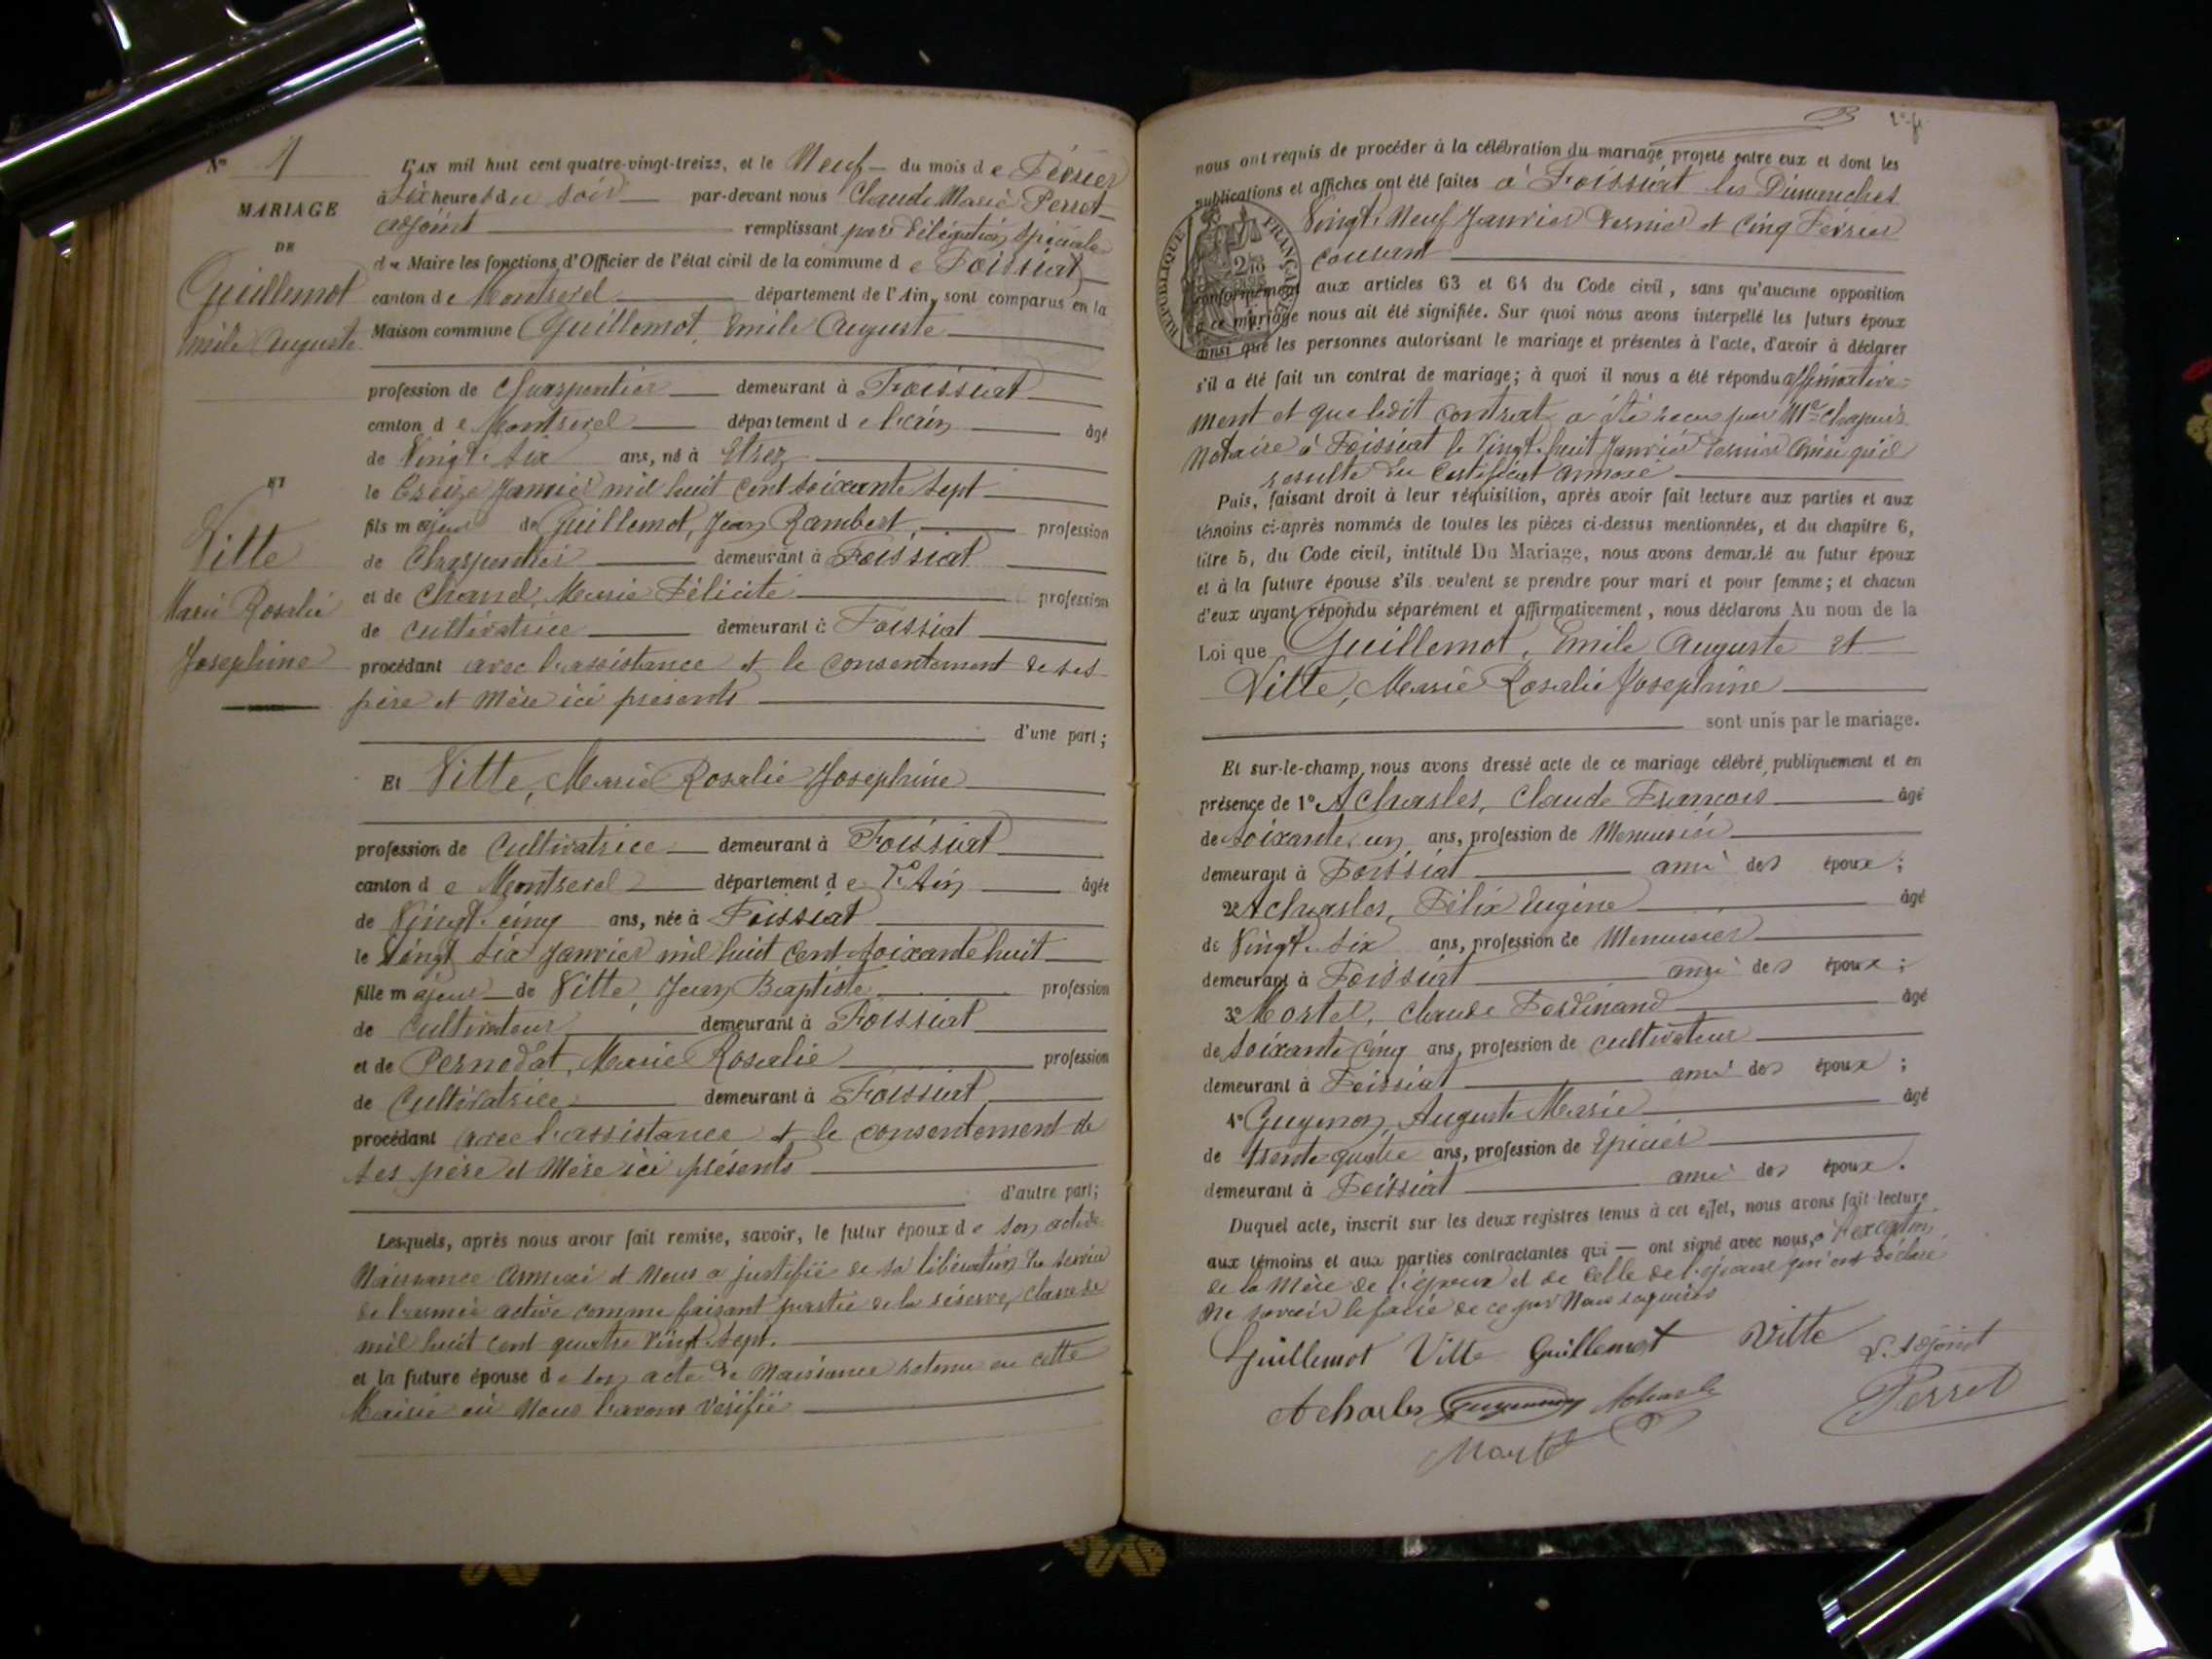 N° 4
MARIAGE
DE
Guillemot
mile Auguste
ET
Vitte
Marie Rosalie
Josephine
L'AN mil huit cent quatre-vingt-treize, et le Neuf du mois de Février
à six heures du soir par-devant nous Claude Marie Perret
adjoint remplissant par délégation spéciale
du Maire les fonctions d'Officier de l'état civil de la commune de Foissiat
canton de Montrevel département de l'Ain, sont comparus en la
Maison commune Guillemot, Emile Auguste
profession de Charpentier demeurant à Foissiat
canton de Montrevel département de l'ain âgé
de Vingt-six ans, né à Etrez
le treize Janvier mil huit cent soixante sept
fils majeur de Guillemot, Jean Rambert, profession
de Charpentier demeurant à Foissiat
et de Chanel, Marie Félicité profession
de cultivatrice demeurant à Foissiat
procédant avec l'assistance et le consentement de ses
père et mère ici présents
d'une part;
Et Vitte, Marie Rosalie Josephine
profession de Cultivatrice demeurant à Foissiat
canton de Montrevel département de l'Ain âgée
de Vingt-cinq ans, née à Foissiat
le Vingt six Janvier mil huit cent soixante huit
fille majeur de Vitte, Jean Baptiste profession
de Cultivateur demeurant à Foissiat
et de Pernodat, Marie Rosalie profession
de Cultivatrice demeurant à Foissiat
procédant avec l'assistance et le consentement de
ses père et mère ici présents
d'autre part;
Lesquels, après nous avoir fait remise, savoir, le futur époux de son acte de
Naissance annexé et nous a justifié de sa libération du service
de l'armée active comme faisant partie de la réserve, classe de
mil huit cent quatre vingt-sept.
et la future épouse de son acte de Naissance retenu en cette
Mairie où nous l'avons vérifié
nous ont requis de procéder à la célébration du mariage projeté entre eux et dont les
publications et affiches ont été faites à Foissiat les Dimanches
Vingt-Neuf Janvier dernier et Cinq Février
courant
RÉPUBLIQUE FRANÇAISE
conformément aux articles 63 et 64 du Code civil, sans qu'aucune opposition
à ce mariage nous ait été signifiée. Sur quoi nous avons interpellé les futurs époux
ainsi que les personnes autorisant le mariage et présentes à l'acte, d'avoir à déclarer
s'il a été fait un contrat de mariage; à quoi il nous a été répondu affirmative=
ment et que ledit contrat a été reçu par Me Chapuis
Notaire à Foissiat le Vingt-huit Janvier dernier ainsi qu'il
résulte du certificat annexé
Puis, faisant droit à leur réquisition, après avoir fait lecture aux parties et aux
témoins ci-après nommés de toutes les pièces ci-dessus mentionnées, et du chapitre 6,
titre 5, du Code civil, intitulé Du Mariage, nous avons demandé au futur époux
et à la future épouse s'ils veulent se prendre pour mari et pour femme; et chacun
d'eux ayant répondu séparément et affirmativement, nous déclarons Au nom de la
Loi que Guillemot, Emile Auguste et
Vitte, Marie Rosalie Josephine
sont unis par le mariage.
Et sur-le-champ, nous avons dressé acte de ce mariage célébré publiquement et en
présence de 1° Acharles, Claude François âgé
de soixante-un ans, profession de Menuisier
demeurant à Foissiat ami des époux;
2e Acharles, Félix Eugène âgé
de Vingt-six ans, profession de Menuisier
demeurant à Foissiat ami des époux;
3e Mortel, Claude Ferdinand âgé
de soixante cinq ans, profession de cultivateur
demeurant à Foissiat ami des époux;
4° Guyenon, Auguste Marie âgé
de trente quatre ans, profession de Epicier
demeurant à Foissiat ami des époux.
Duquel acte, inscrit sur les deux registres tenus à cet effet, nous avons fait lecture
aux témoins et aux parties contractantes qui ont signé avec nous, à l'exception
de la Mère de l'époux et de celle de l'épouse qui ont déclaré
ne savoir le faire de ce par nous requises
Guillemot Vitte Guillemot Vitte L'adjoint
Acharles Guyenon Acharles Perret
Mortel